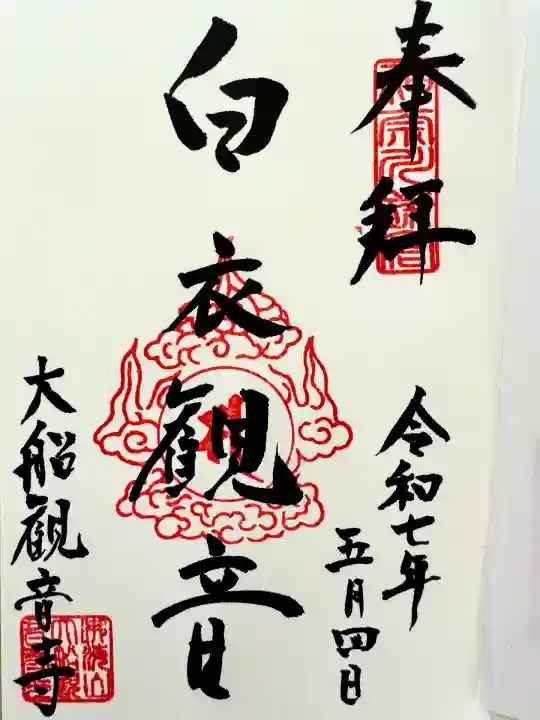 奉拜
令和七年
五月四日
白衣觀音
大船觀音寺